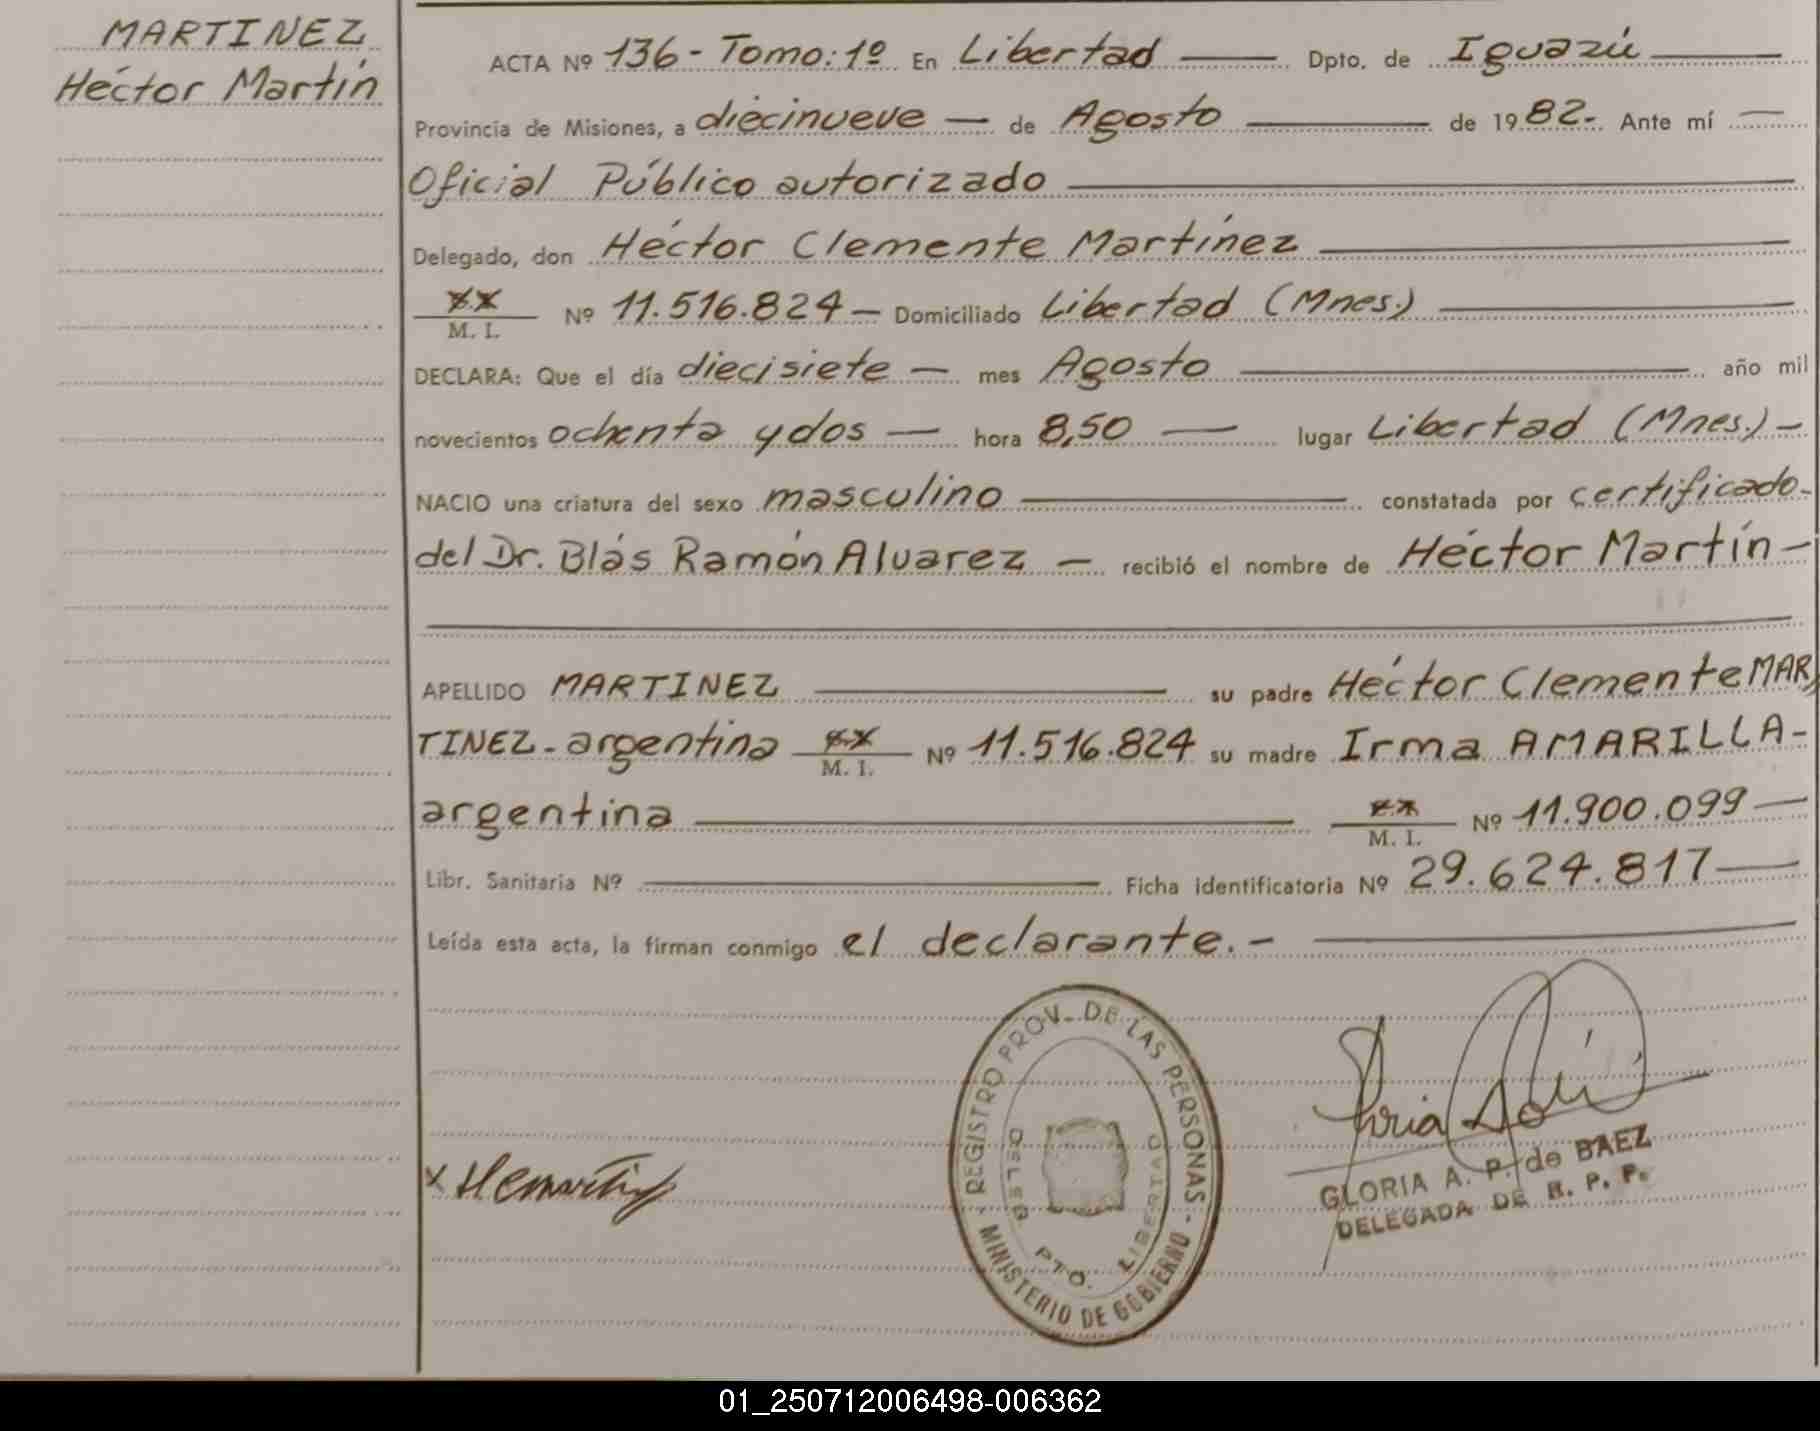 MARTINEZ
Héctor Martín
ACTA Nº 136 - Tomo: 1º En Libertad Dpto. de Iguazú
Provincia de Misiones, a diecinueve de Agosto de 1982.- Ante mí
Oficial Público autorizado
Delegado, don Héctor Clemente Martínez
M. I. Nº 11.516.824 Domiciliado Libertad (Mnes.)
DECLARA: Que el día diecisiete mes Agosto año mil
novecientos ochenta y dos hora 8,50 lugar Libertad (Mnes.)
NACIO una criatura del sexo masculino constatada por certificado
del Dr. Blás Ramón Alvarez recibió el nombre de Héctor Martín
APELLIDO MARTINEZ su padre Héctor Clemente MAR
TINEZ - argentino M. I. Nº 11.516.824 su madre Irma AMARILLA -
argentina M. I. Nº 11.900.099
Libr. Sanitaria Nº Ficha identificatoria Nº 29.624.817
Leída esta acta, la firman conmigo el declarante.-
REGISTRO PROV. DE LAS PERSONAS - MINISTERIO DE GOBIERNO
DELEG PTO. LIBERTAD
GLORIA A. P. de BAEZ
DELEGADA DE R. P. P.
01_250712006498-006362